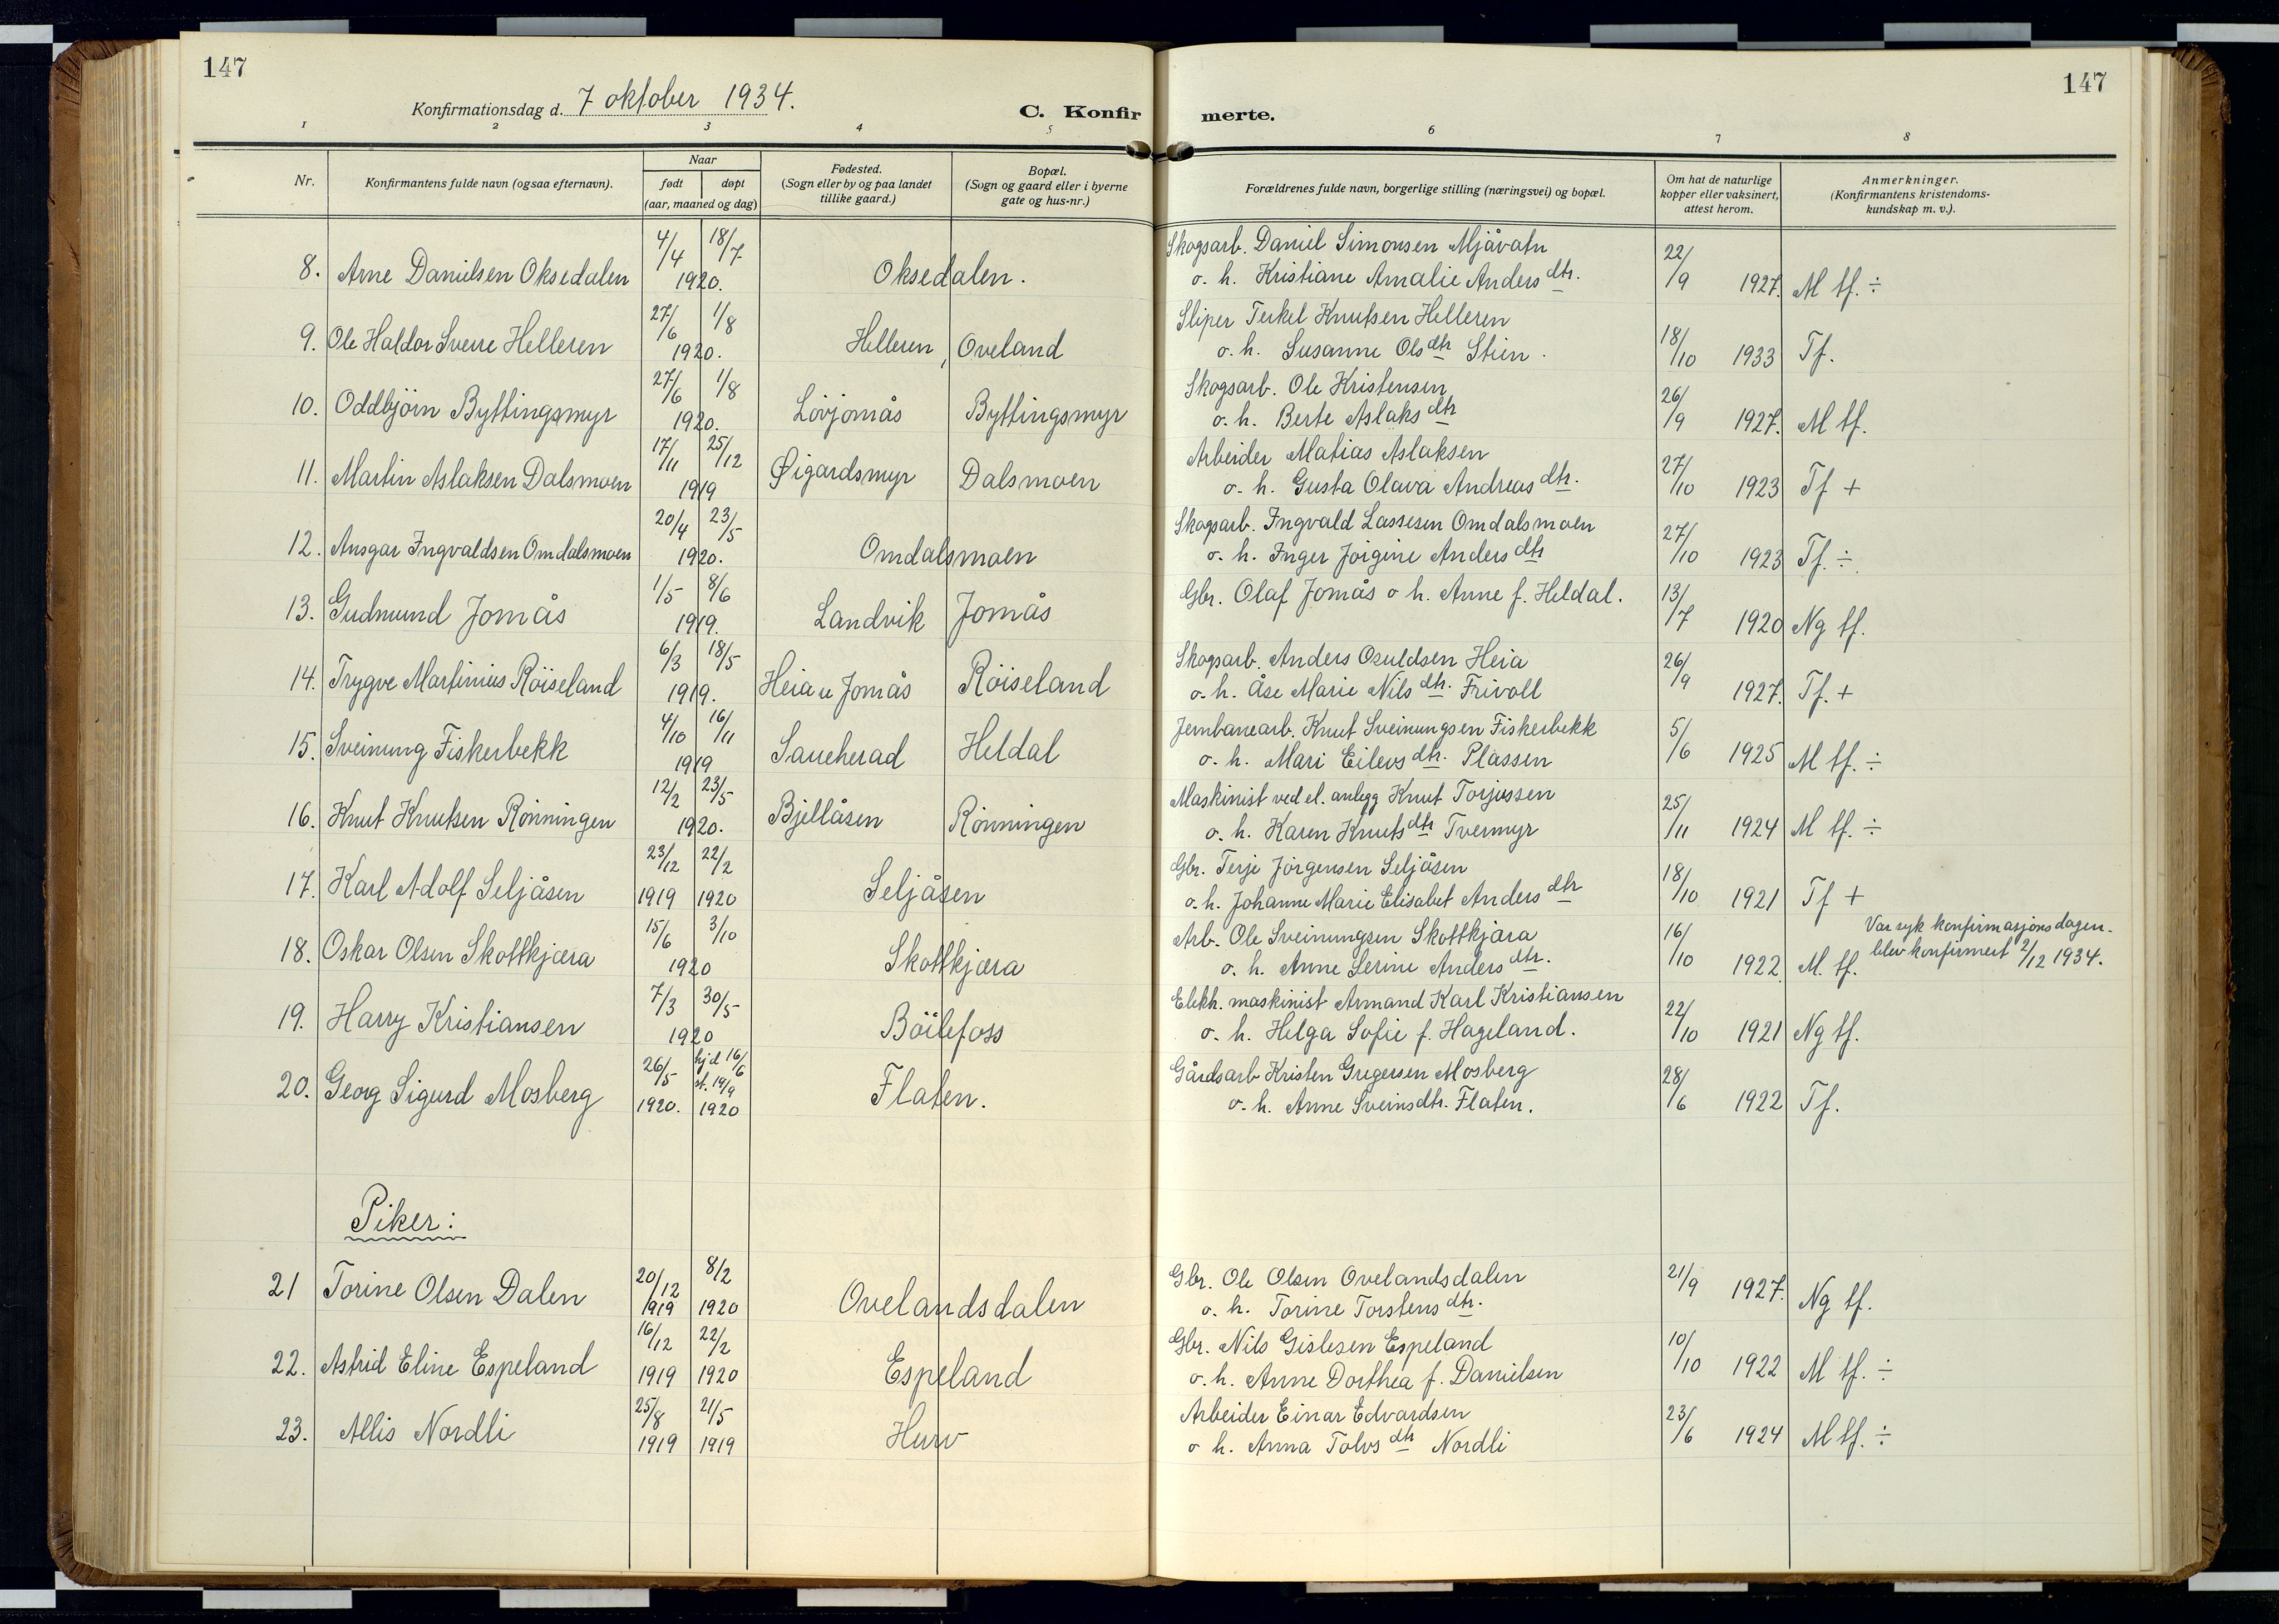 147
147
Konfirmationsdag d. 7 oktober 1934.
C. Konfir merte.
1 2 3 4 5 6 7 8
Nr.
Konfirmantens fulde navn (ogsaa efternavn).
Naar
født døpt
(aar, maaned og dag)
Fødested.
(Sogn eller by og paa landet
tillike gaard.)
Bopæl.
(Sogn og gaard eller i byerne
gate og hus-nr.)
Forældrenes fulde navn, borgerlige stilling (næringsvei) og bopæl.
Om hat de naturlige
kopper eller vaksinert,
attest herom.
Anmerkninger.
(Konfirmantens kristendoms-
kundskap m. v.).
4/4 18/7 Skogsarb. Daniel Simonsen Mjåvatn 22/
8. Arne Danielsen Oksedalen 1920. Oksedalen. o. h. Kristiane Amalie Andersdtr. /9 1927. M tf. ÷
27/6 1/8 Sliper Terkel Knutsen Helleren
9. Ole Haldor Sverre Helleren 1920. Helleren, Oveland o. h. Susanne Olsdtr Stien. 18/10 1933 Tf.
27/6 1/8 Skogsarb. Ole Kristensen
10. Oddbjörn Byttingsmyr 1920. Lövjomås Byttingsmyr o. h. Berte Aslaksdtr 26/9 1927. M tf.
17/11 25/12 Arbeider Matias Aslaksen
11. Martin Aslaksen Dalsmoen 1919 Øigardsmyr Dalsmoen o. h. Gusta Olava Andreasdtr. 27/10 1923 Tf +
20/4 23/5 Skogsarb. Ingvald Lassesen Omdalsmoen
12. Ansgar Ingvaldsen Omdalsmoen 1920. Omdalsmoen o. h. Inger Jörgine Andersdtr 27/10 1923 Tf. ÷
1/5 8/6 Gbr. Olaf Jomås o h. Anne f. Heldal. 13/
13. Gudmund Jomås 1919. Landvik Jomås /7 1920 Ng tf.
6/3 18/5 Skogsarb. Anders Osuldsen Heia
14. Trygve Martinius Röiseland 1919. Heia u Jomås Röiseland o. h. Åse Marie Nilsdtr. Frivoll 26/9 1927. Tf. +
4/10 16/11 Jernbanearb. Knut Sveinungsen Fiskerbekk
15. Sveinung Fiskerbekk 1919 Saueherad Heldal o. h. Mari Eilevsdtr. Plassen 5/6 1925 M tf. ÷
12/2 23/5 Maskinist ved el. anlegg Knut Torjussen
16. Knut Knutsen Rönningen 1920. Bjellåsen Rönningen o. h. Karen Knutsdtr Tvermyr 25/11 1924 M tf. ÷
23/12 22/2 Gbr. Terje Jörgensen Seljåsen
17. Karl Adolf Seljåsen 1919 1920 Seljåsen o. h. Johanne Marie Elisabet Andersdtr 18/10 1921 Tf +
15/6 3/10 Arb. Ole Sveinungsen Skottkjæra Var syk konfirmasjonsdagen.
18. Oskar Olsen Skottkjæra 1920 Skottkjæra o. h. Anne Serine Andersdtr. 16/10 1922 M. tf. blev konfirmert 2/12 1934.
7/3 30/5 Elekh. maskinist Armand Karl Kristiansen
19. Harry Kristiansen 1920 Böilefoss o. h. Helga Sofie f. Hageland. 22/10 1921 Ng tf.
26/5 hjd 16/6 st. 19/9 Gårdsarb Kristen Gregersen Mosberg
20. Georg Sigurd Mosberg 1920. 1920 Flaten. o. h. Anne Sveinsdtr. Flaten. 28/6 1922 Tf.
Piker:
20/12 8/2 Gbr. Ole Olsen Ovelandsdalen
21 Torine Olsen Dalen 1919 1920 Ovelandsdalen o. h. Torine Torstensdtr. 21/9 1927. Ng tf.
16/12 22/2 Gbr. Nils Gislesen Espeland
22. Astrid Eline Espeland 1919 1920 Espeland o. h. Anne Dorthea f. Danielsen 10/10 1922 M tf. ÷
25/8 21/5 Arbeider Einar Edvardsen
23. Allis Nordli 1919 1919 Hurv o h. Anna Tolvsdtr Nordli 23/6 1924 M tf. ÷